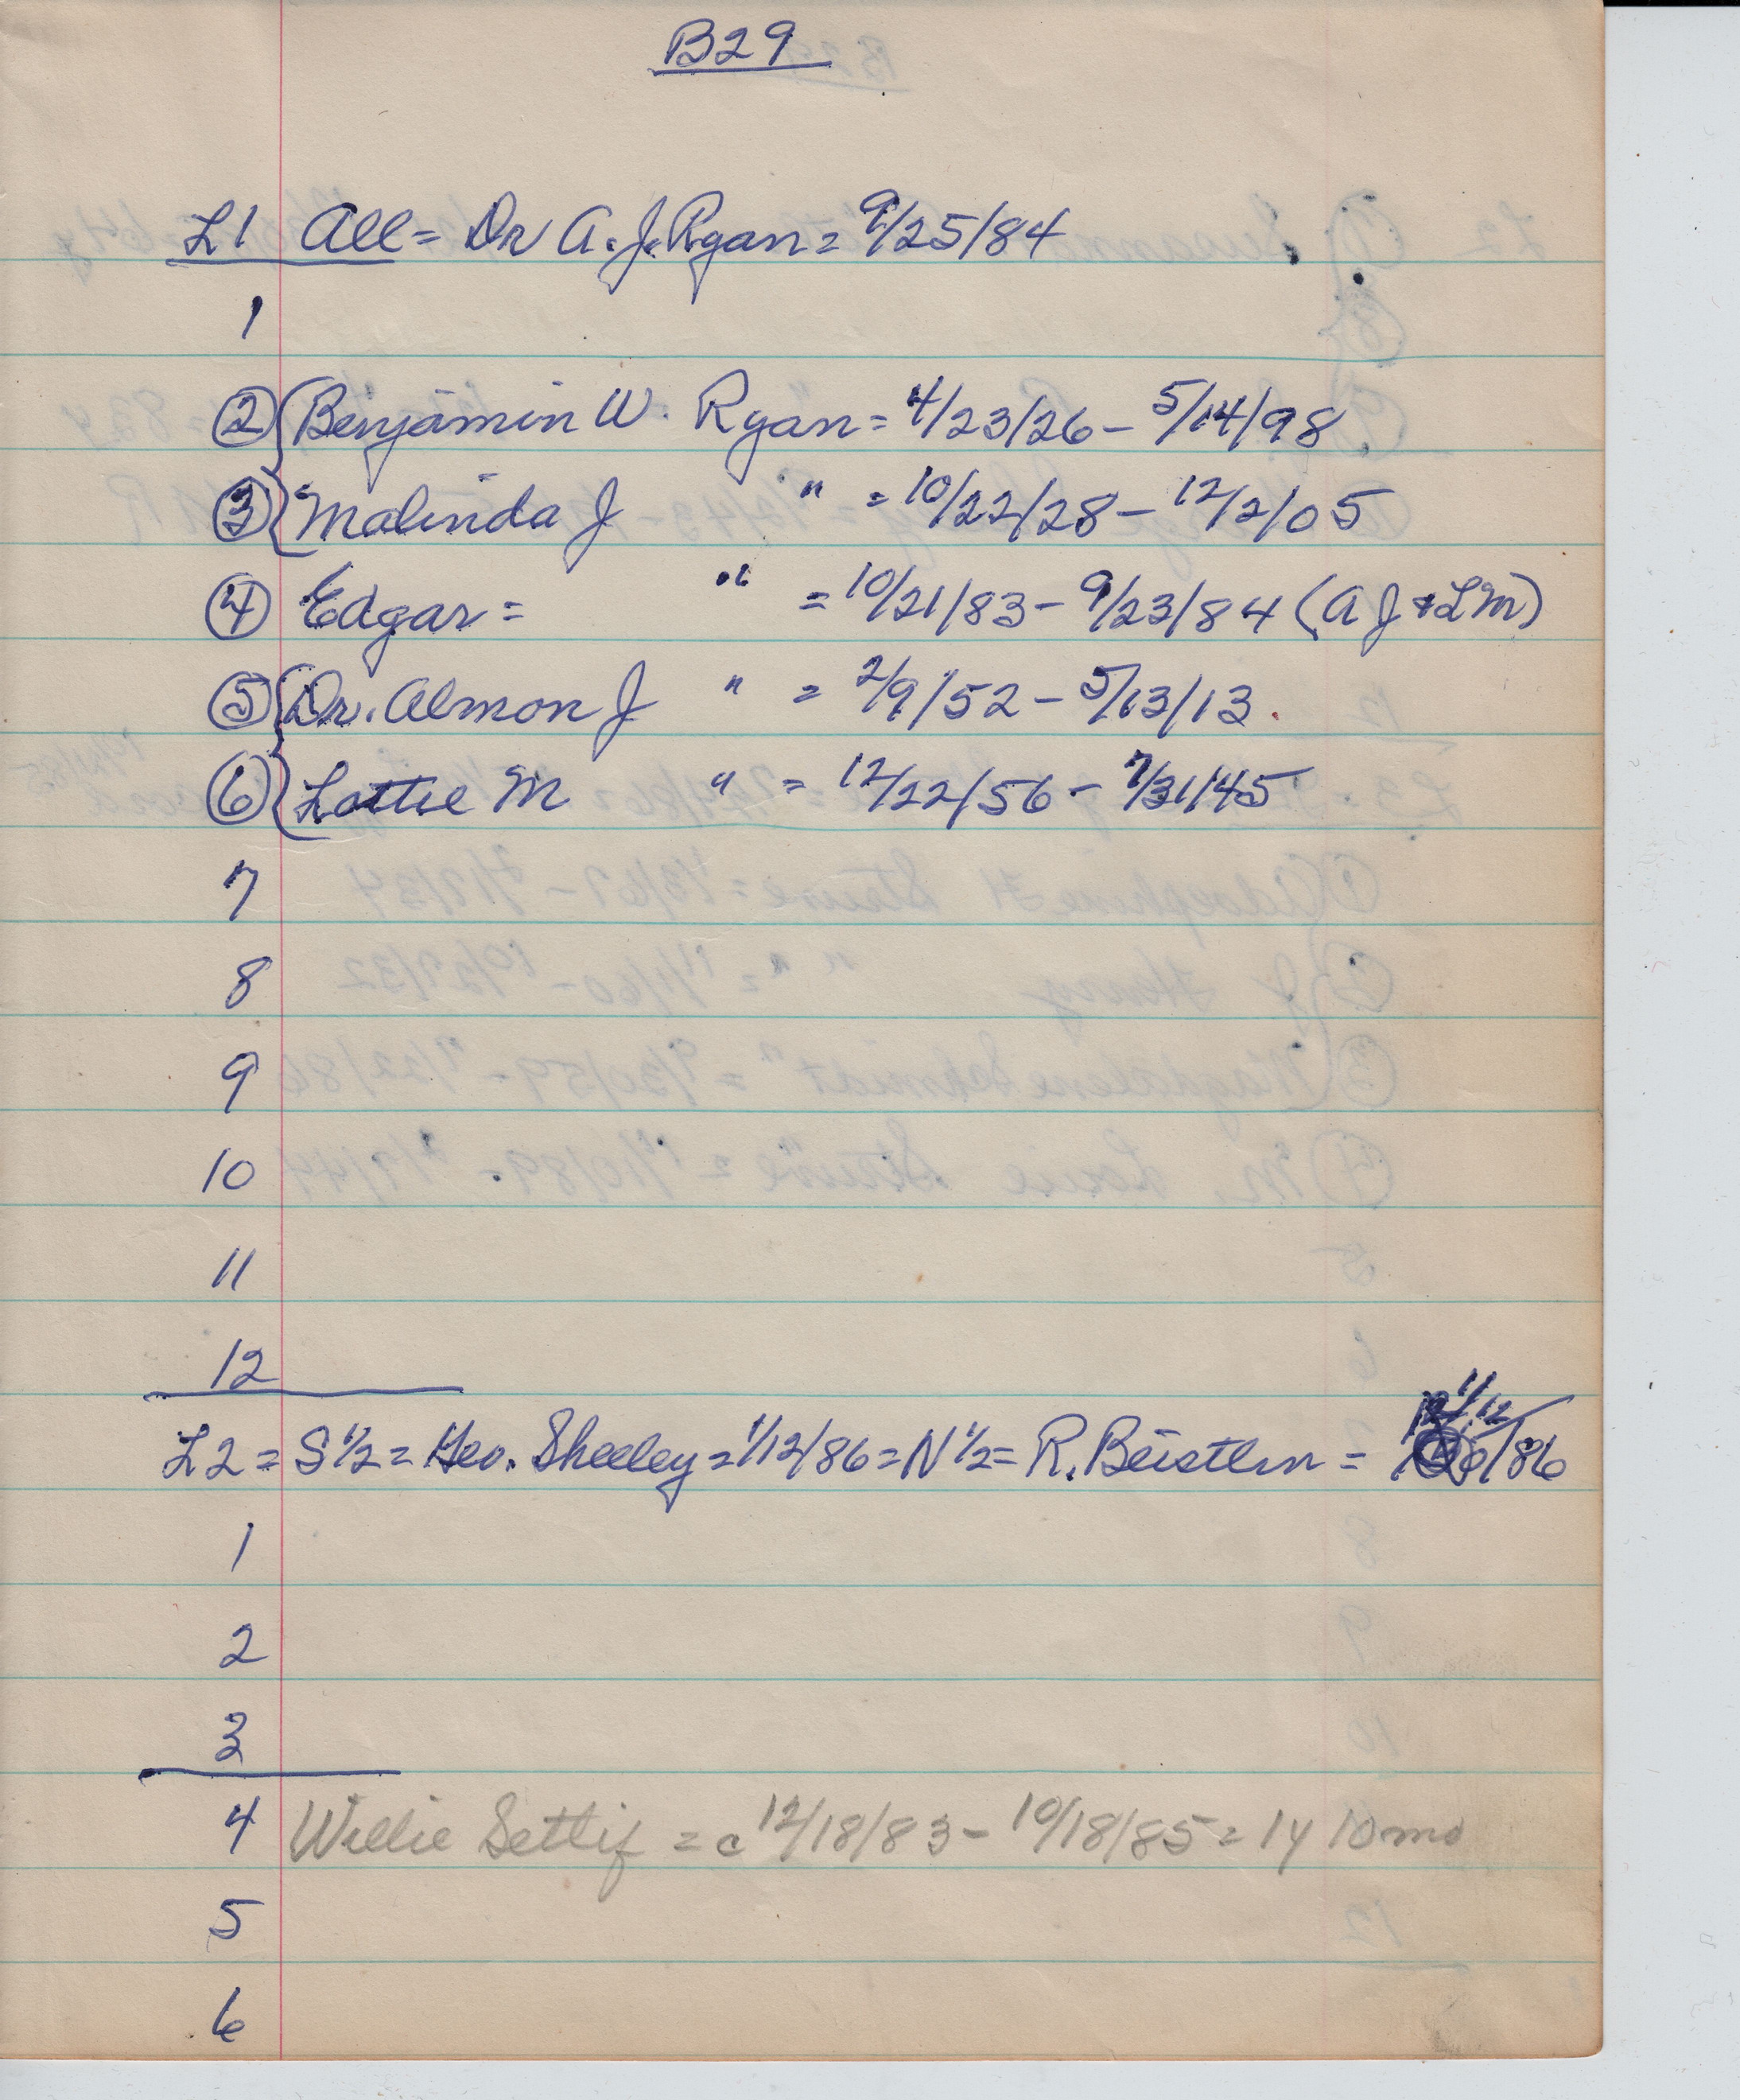 B29
L1 All = Dr A. J. Ryan = 9/25/84
1
2 Benjamin W. Ryan = 4/23/26 - 5/14/98
3 Malinda J " = 10/22/28 - 12/2/05
4 Edgar = " = 10/21/83 - 9/23/84 (A J & L M)
5 Dr. Almon J " = 2/9/52 - 5/13/13.
6 Lottie M " = 12/22/56 - 7/31/45
7
8
9
10
11
12
L2 = S 1/2 = Geo. Sheeley = 1/12/86 = N 1/2 = R. Beistlin = /86
1
2
3
4 Willie Settif = c 12/18/83 - 10/18/85 = 1y 10 mo
5
6